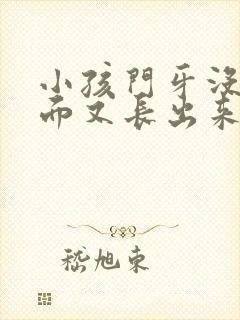 小孩門牙没
而又長出来
嵇旭東